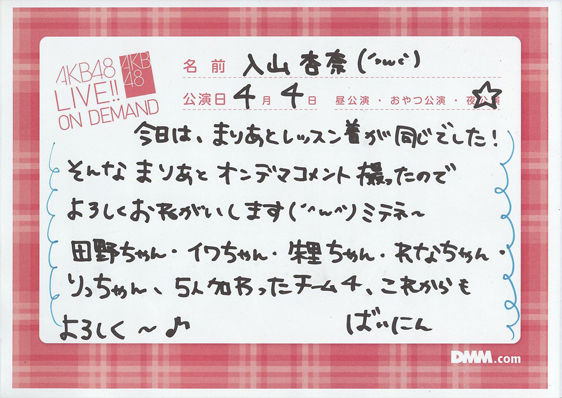 AKB48
LIVE!!
ON DEMAND
AKB
48
名前 入山杏奈(´^ω^`)
公演日 4月4日 昼公演・おやつ公演・夜公演
今日は、まりあとレッスン着が同じでした!
そんなまりあとオンデマコメント撮ったので
よろしくおねがいします(´^ω^`)ミテネ~
田野ちゃん・イワちゃん・梓ちゃん・れなちゃん・
りっちゃん、5人加わったチーム4、これからも
よろしく~♪ ばいにん
DMM.com